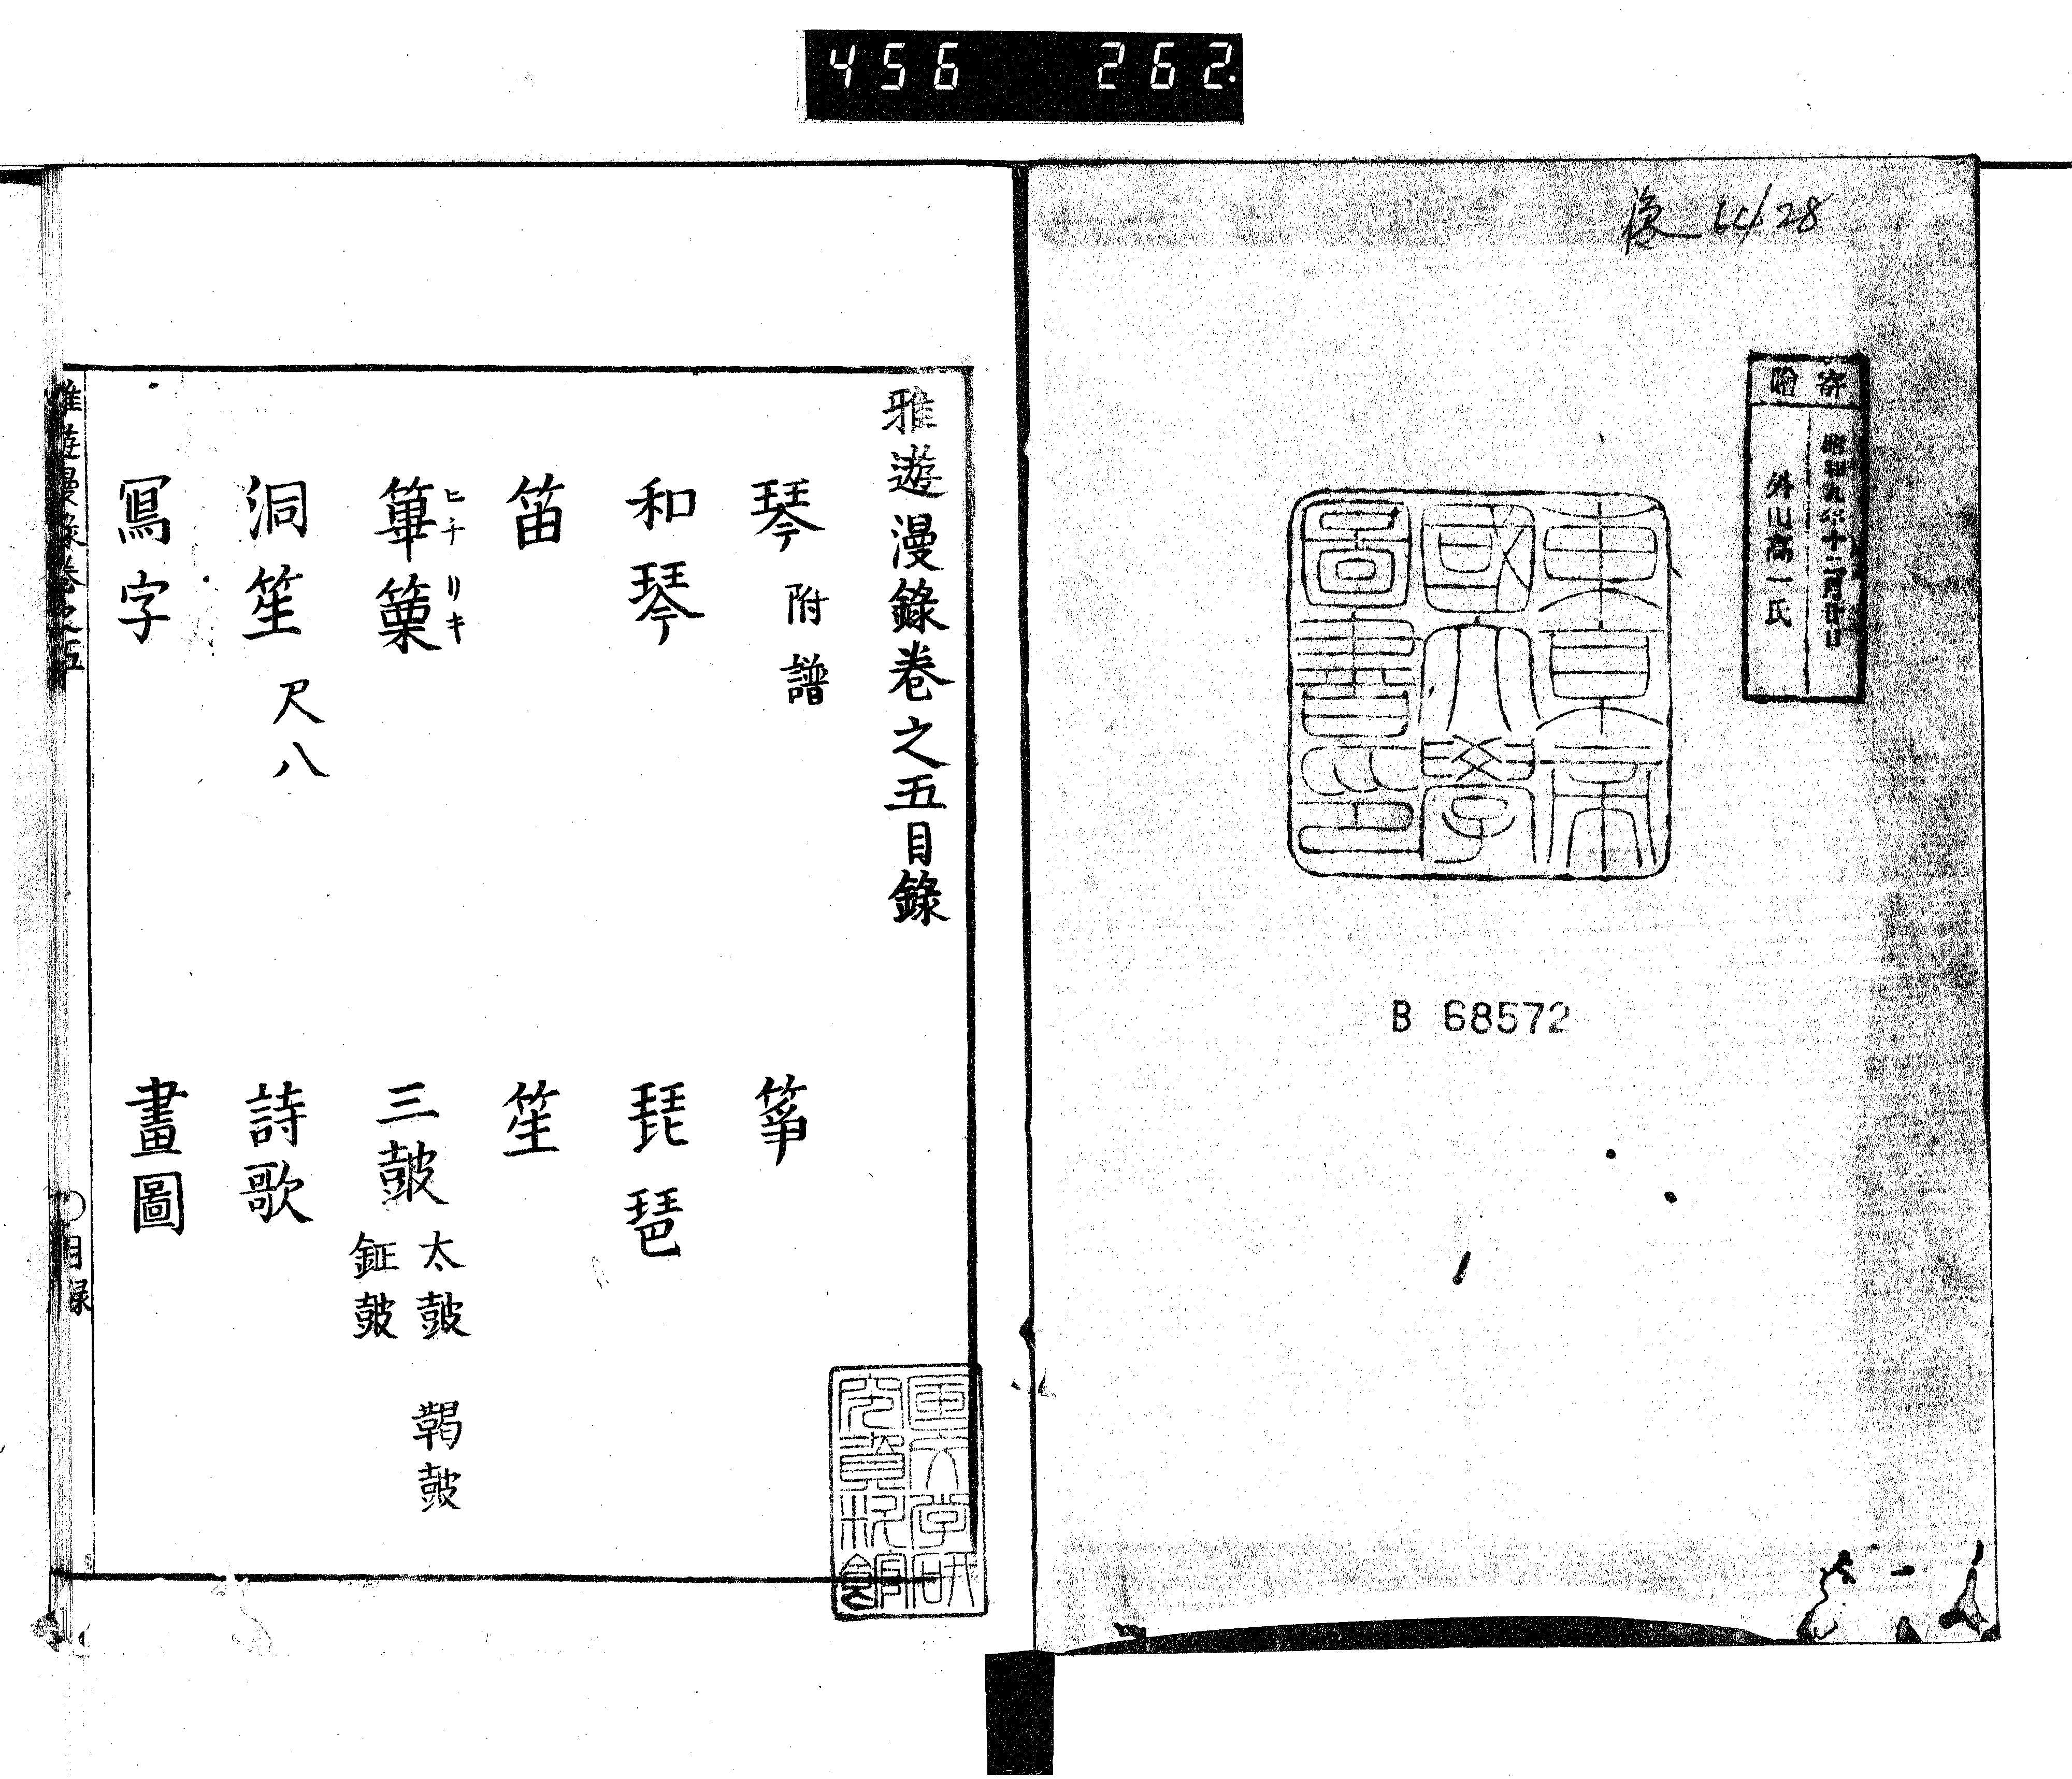 456 262.
寄贈
昭和九年十二月廿日
外山高一氏
東京帝
國大學
圖書印
B 68572
雅遊漫錄卷之五目錄
琴 附譜
箏
和琴
琵琶
笛
笙
篳篥
ヒチリキ
三皷 太皷 鞨皷
鉦皷
洞笙 尺八
詩歌
寫字
畫圖
雅遊漫錄卷之五
○目録
国文学研
究資料館